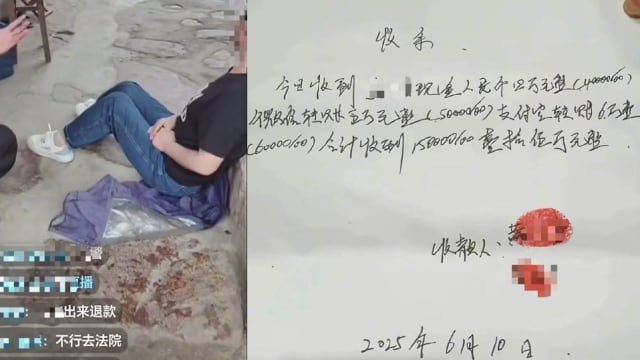 警
播
: 出来退款
: 不行去法院
收条
今日收到 现金人民币四万元整(40000/00)
转账伍万元整(50000/00)支付宝转账6万整
(60000/00)合计收到150000/00壹拾伍万元整.
收款人:黄
2025年6月10日.